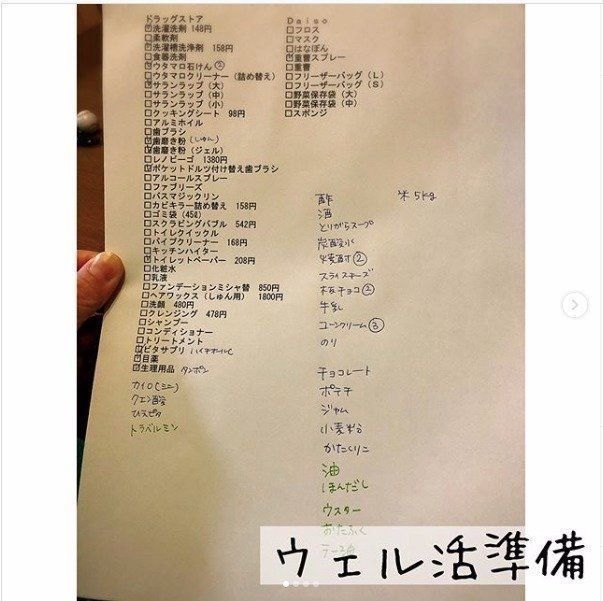 ドラッグストア
☑洗濯洗剤 148円
□柔軟剤
☑洗濯槽洗浄剤 158円
□食器洗剤
☑ウタマロ石けん②
□ウタマロクリーナー（詰め替え）
☑サランラップ（大）
□サランラップ（中）
□サランラップ（小）
□クッキングシート 98円
□アルミホイル
□歯ブラシ
☑歯磨き粉（しゅん）
☑歯磨き粉（ジェル）
□レノビーゴ 1380円
☑ポケットドルツ付け替え歯ブラシ
□アルコールスプレー
□ファブリーズ
□バスマジックリン
□カビキラー詰め替え 158円
□ゴミ袋（45ℓ）
□スクラビングバブル 542円
□トイレクイックル
□パイプクリーナー 168円
□キッチンハイター
☑トイレットペーパー 208円
□化粧水
□乳液
□ファンデーションミシャ替 850円
□ヘアワックス（しゅん用） 1800円
□洗顔 480円
□クレンジング 478円
□シャンプー
□コンディショナー
□トリートメント
☑ビタサプリ ハイチオールC
☑目薬
☑生理用品 タンポン
カイロ（ミニ）
クエン酸
ひえピタ
トラベルミン
Daiso
□フロス
□マスク
□はなぽん
☑重曹スプレー
□重曹
□フリーザーバッグ（L）
□フリーザーバッグ（S）
□野菜保存袋（大）
□野菜保存袋（中）
□スポンジ
酢
米5kg
酒
とりがらスープ
炭酸水
焼酎②
スライスチーズ
板チョコ②
牛乳
コーンクリーム③
のり
チョコレート
ポテチ
ジャム
小麦粉
かたくりこ
油
ほんだし
ウスター
おたふく
ウェル活準備